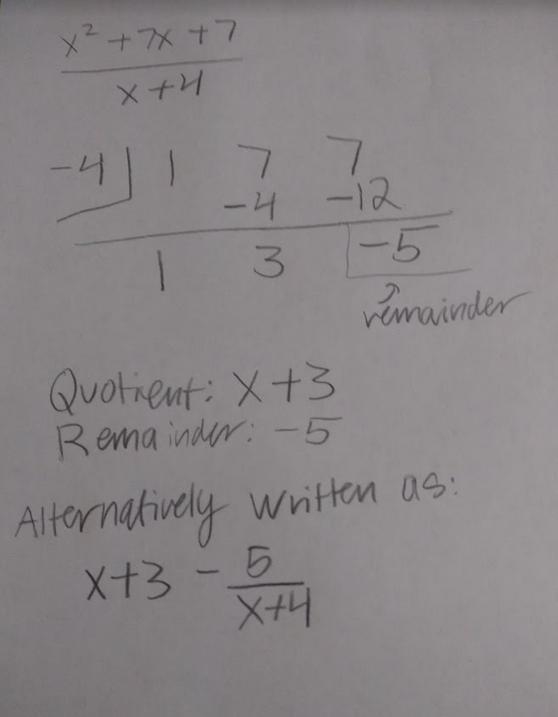 x² + 7x + 7
x + 4
-4 1 7 7
-4 -12
1 3 -5
remainder
Quotient: x + 3
Remainder: -5
Alternatively written as:
x + 3 - 5
x + 4